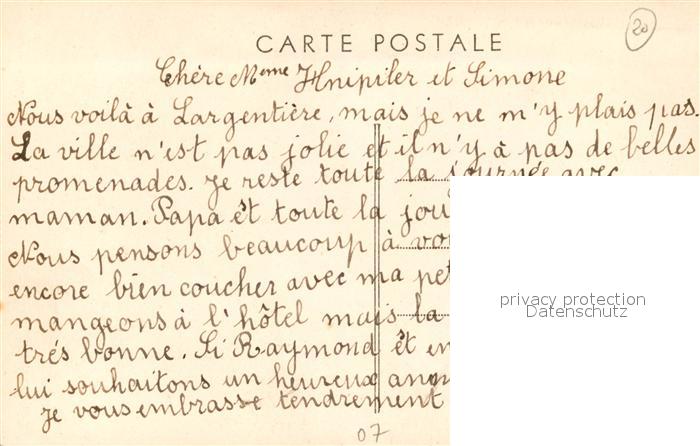 20
CARTE POSTALE
Chère Mᵉᵐᵉ Hnipiler et Simone
Nous voilà à Largentière, mais je ne m'y plais pas.
La ville n'est pas jolie et il n'y à pas de belles
promenades. Je reste toute la journée avec
maman. Papa êt toute la jou
Nous pensons beaucoup à vou
encore bien coucher avec ma pet
mangeons à l'hôtel mais la
trés bonne. Si Raymond êt en
lui souhaitons un heureux ann
je vous embrasse tendrement
07
privacy protection
Datenschutz